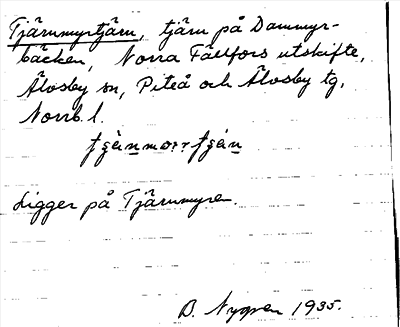 Tjärnmyrtjärn, tjärn på Dammyr-
bäcken, Norra Fällfors utskifte,
Älvsby sn, Piteå och Älvsby tg,
Norrb. l.
Ligger på Tjärnmyren.
B. Nygren 1935.